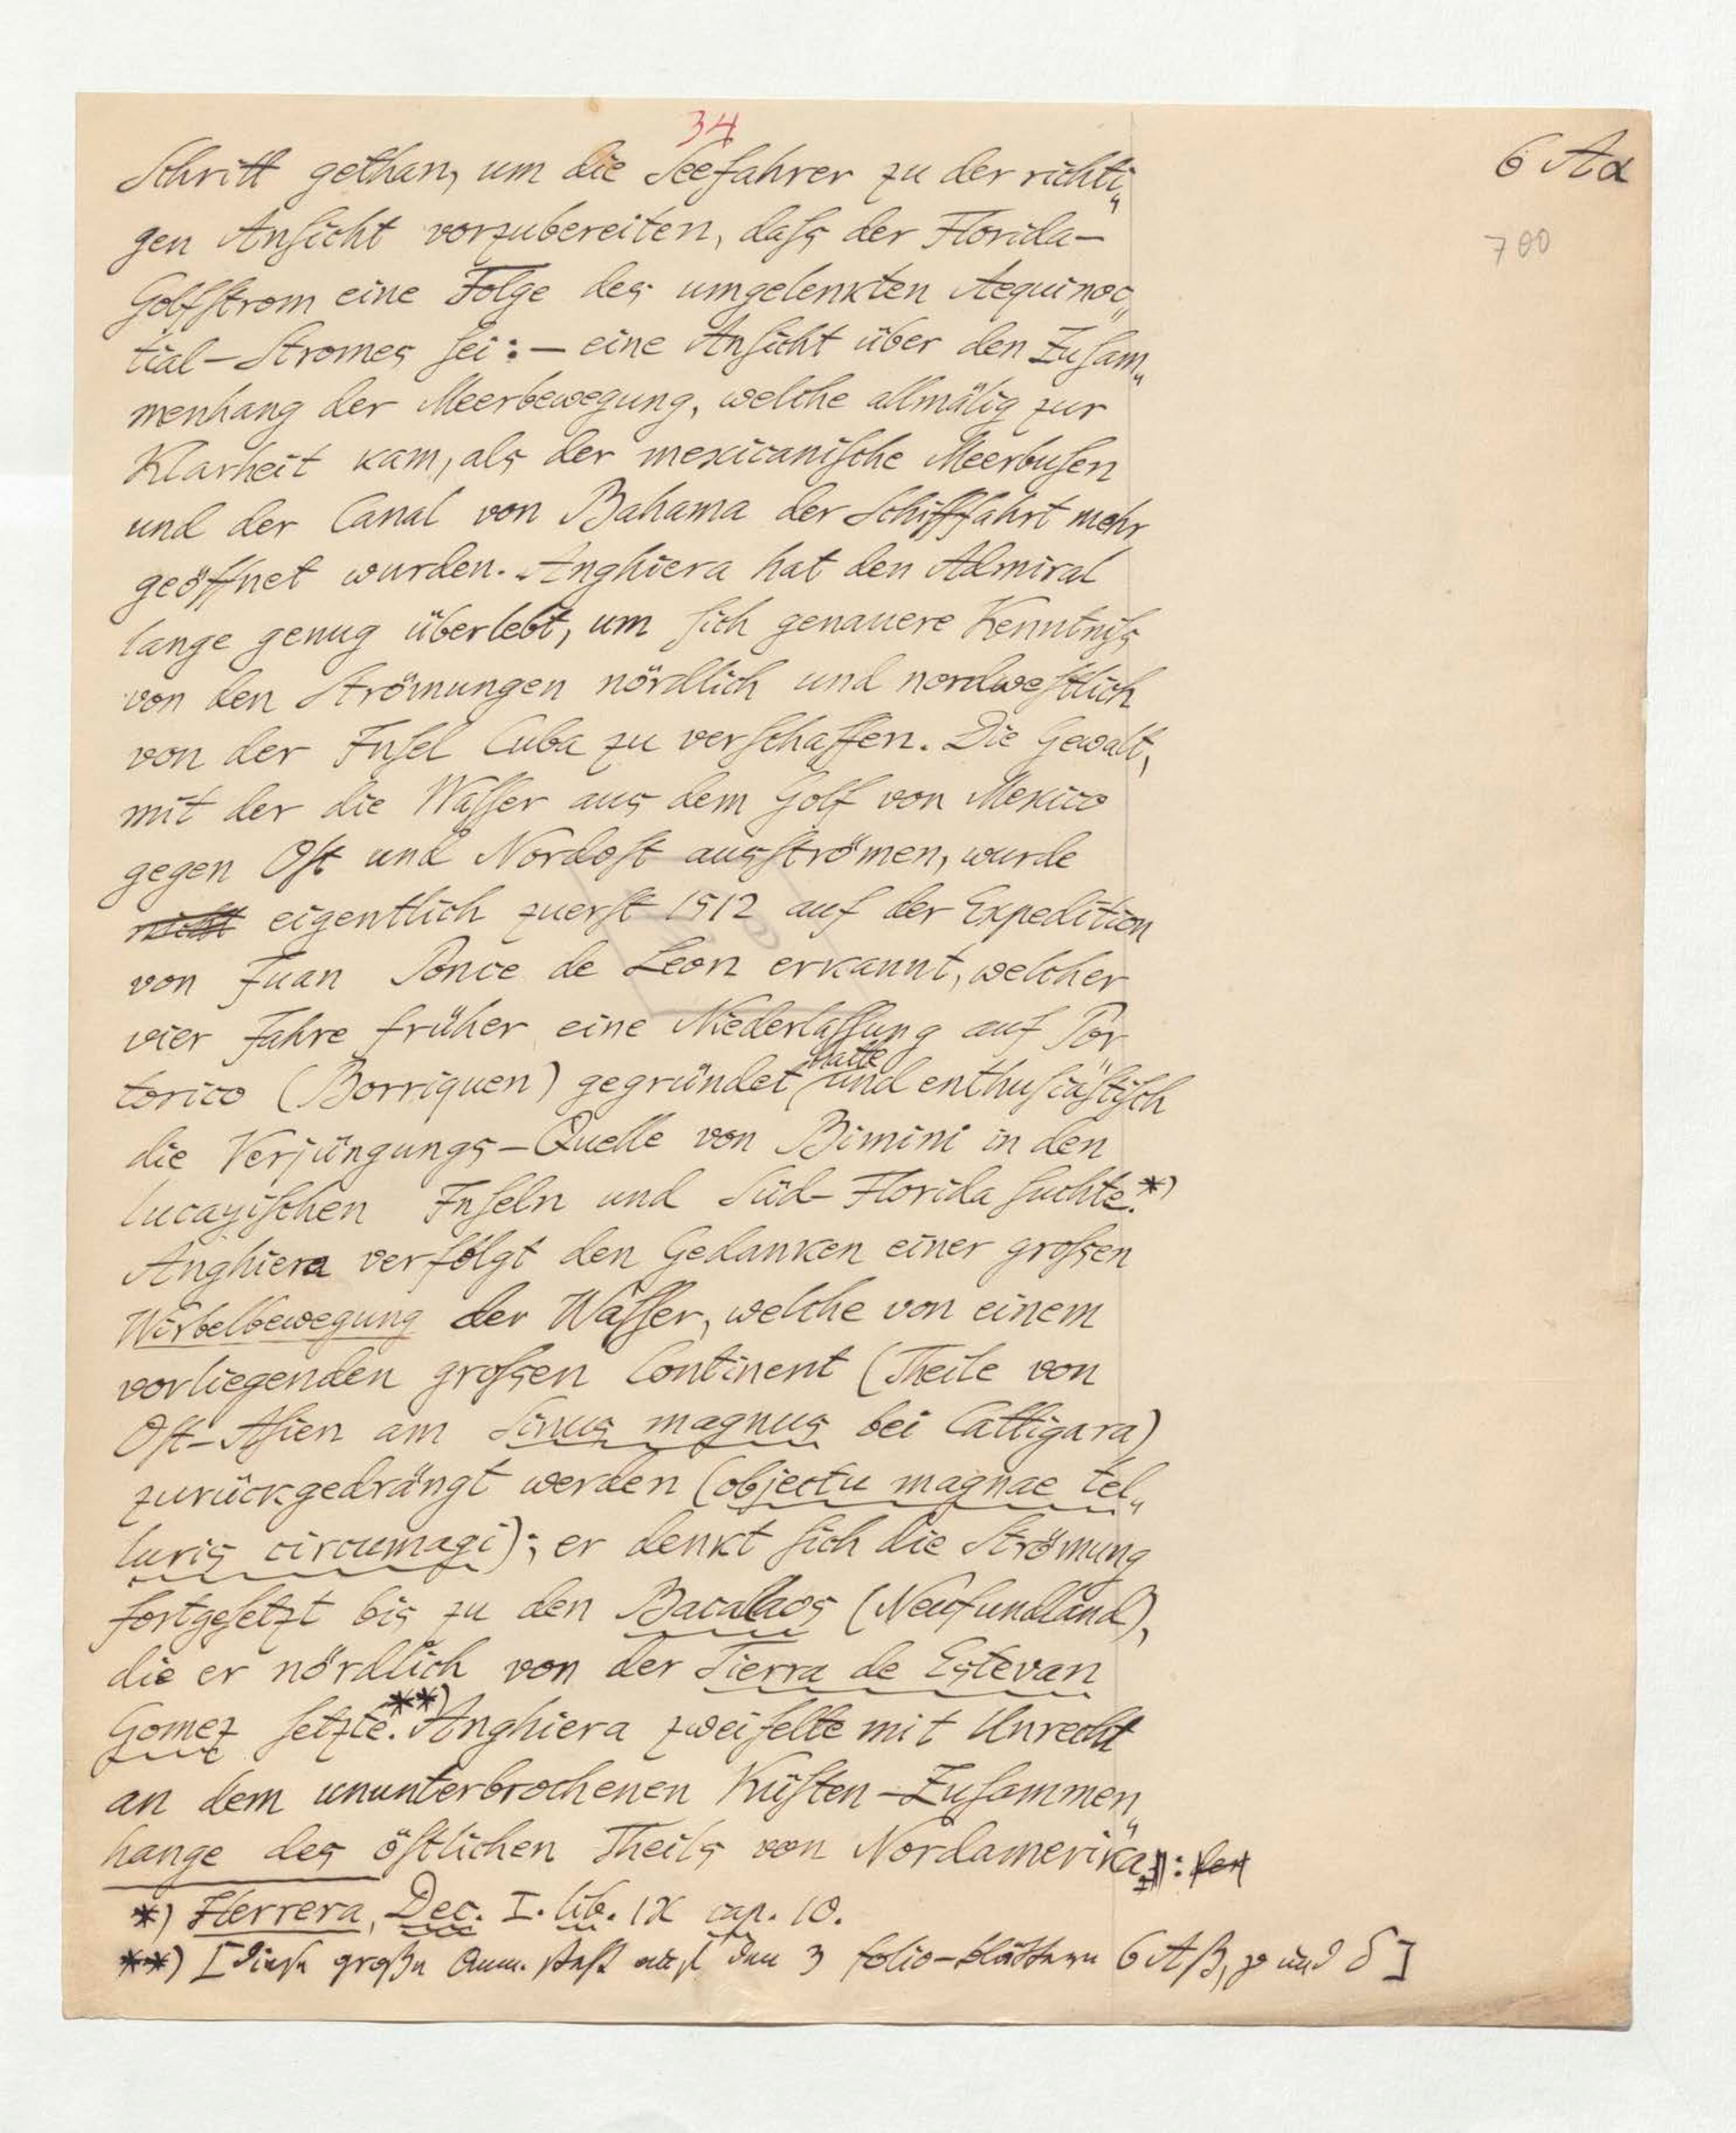 34
6 Aα
700
Schritt gethan, um die Seefahrer zu der richti„
gen Ansicht vorzubereiten, dass der Florida-
Golfstrom eine Folge des umgelenkten Aequinoc„
tial-Stromes sei: — eine Ansicht über den Zusam„
menhang der Meerbewegung, welche allmälig zur
Klarheit kam, als der mexicanische Meerbusen
und der Canal von Bahama der Schifffahrt mehr
geöffnet wurden. Anghiera hat den Admiral
lange genug überlebt, um sich genauere Kenntniss
von den Strömungen nördlich und nordwestlich
von der Insel Cuba zu verschaffen. Die Gewalt,
mit der die Wasser aus dem Golf von Mexico
gegen Ost und Nordost ausströmen, wurde
nicht eigentlich zuerst 1512 auf der Expedition
von Juan Ponce de Leon erkannt, welcher
vier Jahre früher eine Niederlassung auf Por
torico (Borriquen) gegründet hatte und enthusiastisch
die Verjüngungs-Quelle von Bimini in den
lucayischen Inseln und Süd-Florida suchte.*)
Anghiera verfolgt den Gedanken einer grossen
Wirbelbewegung der Wasser, welche von einem
vorliegenden grossen Continent (Theile von
Ost-Asien am Sinus magnus bei Cattigara)
zurückgedrängt werden (objectu magnae tel„
luris circumagi); er denkt sich die Strömung
fortgesetzt bis zu den Bacallaos (Neufundland),
die er nördlich von der Tierra de Estevan
Gomez setzte.**) Anghiera zweifelte mit Unrecht
an dem ununterbrochenen Küsten-Zusammen„
hange des östlichen Theils von Nordamerika:
*) Herrera, Dec. I. lib. IX cap. 10.
**) [diese große Anm. steht auf den 3 folio-blättern 6 Aβ, γ und δ]